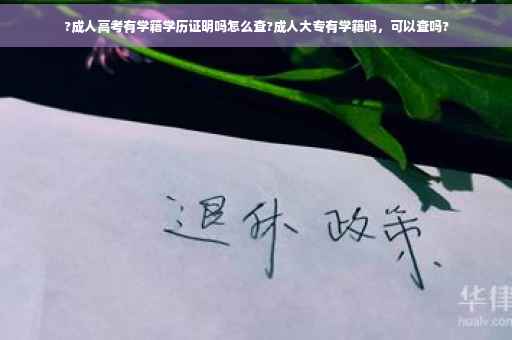 ?成人高考有学籍学历证明吗怎么查?成人大专有学籍吗，可以查吗?
退休 政策
华律
hualv.com